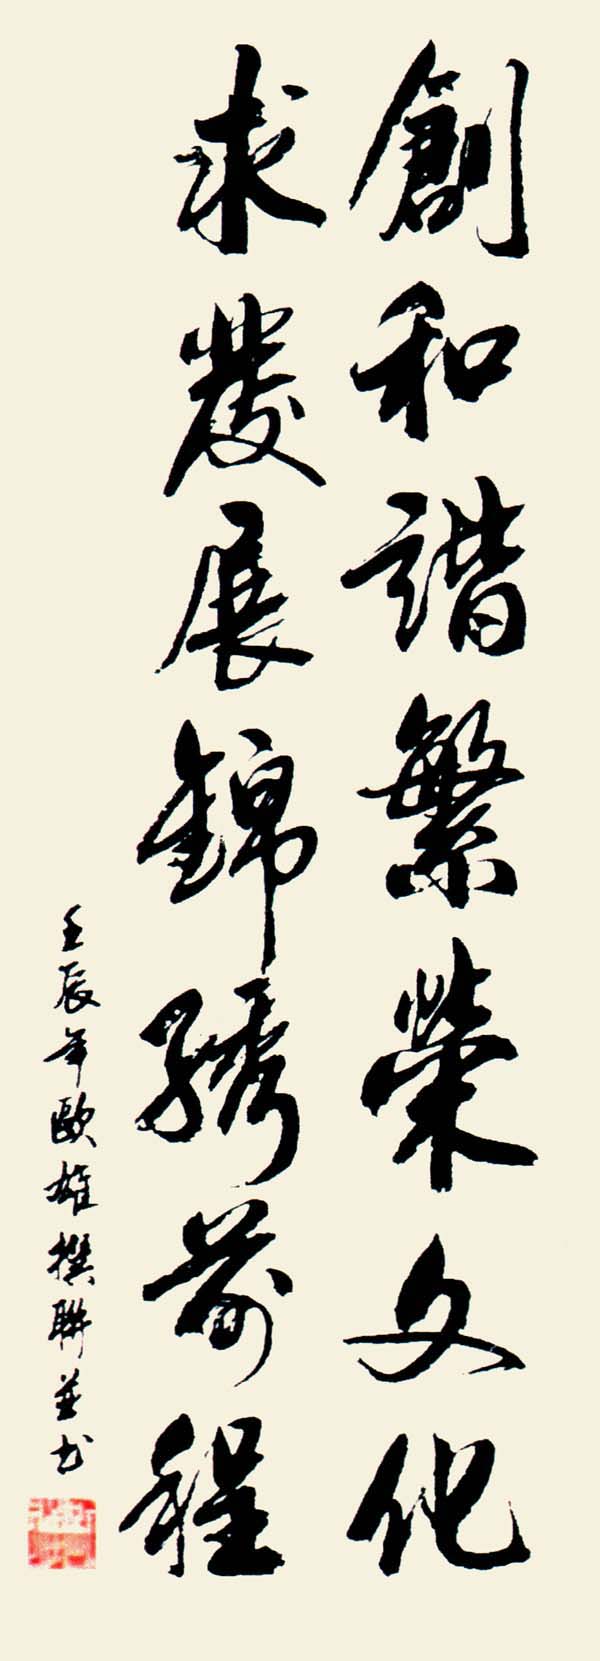 創和諧繁榮文化
求發展錦綉前程
壬辰年歐雄撰聯並书